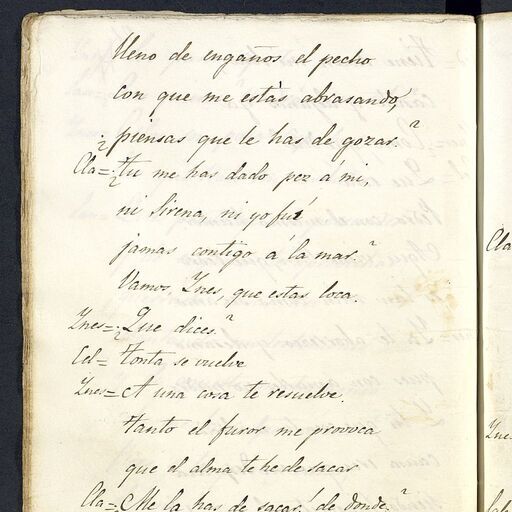 lleno de engaños el pecho
con que me estás abrasando,
¿piensas que le has de gozar?
Cla=¿Tu me has dado pez á mi,
ni Sirena, ni yo fuí
jamas contigo á la mar?
Vamos, Ynes, que estas loca.
Ynes=¿Que dices?
Cel= Tonta se vuelve
Ynes= A una cosa te resuelve.
Tanto el furor me provoca
que el alma te he de sacar
Cla=¿Me la has de sacar! de donde?
Cla
Ynes